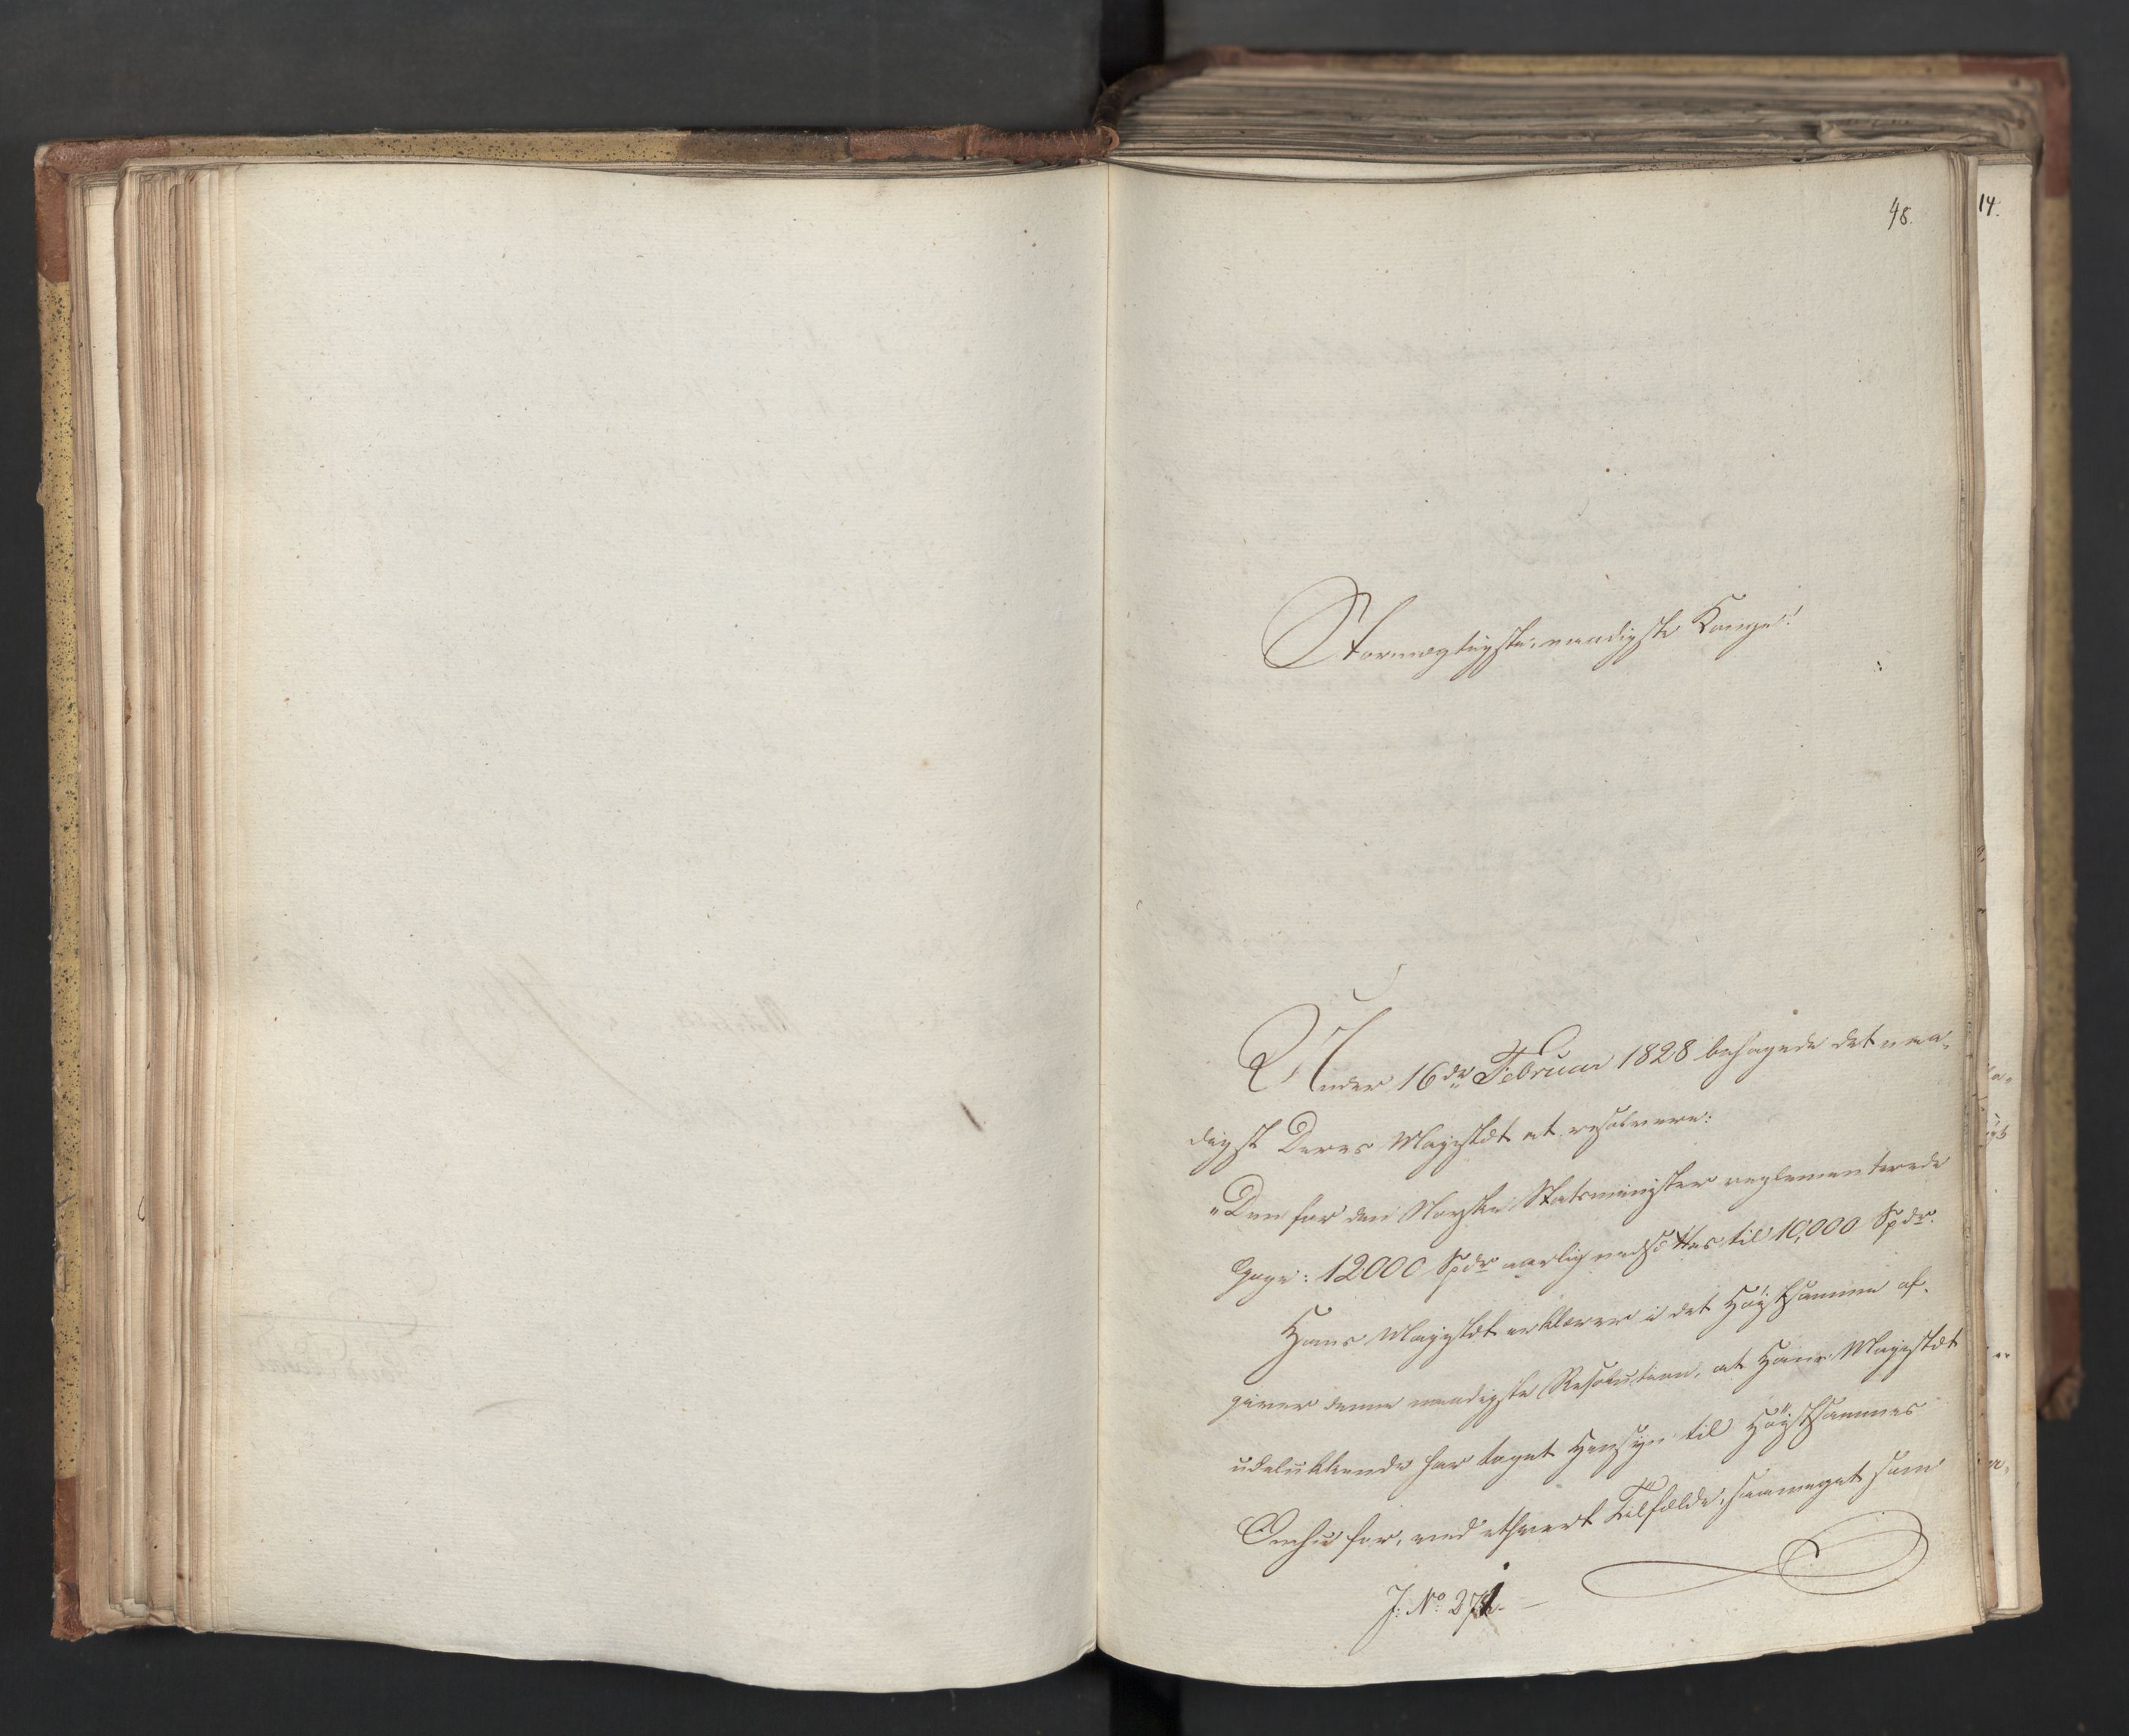 48.
14.
Stormægtigste, naadigste Konge!
Under 16de Februar 1828 behagede det naa-
digst Deres Majestæt at resolvere:
"Den for den Norske Statsminister reglementerede
Gage: 12000 Spdr aarlig nedsættes til 10,000 Spdr.
Hans Majestæt erklærer i det Høistsamme af-
giver denne naadigste Resolution, at Hans Majestæt
udelukkende har taget Hensyn til Høistsammes
Omhu for, ved ethvert Tilfælde, saameget som
J: No 271. —